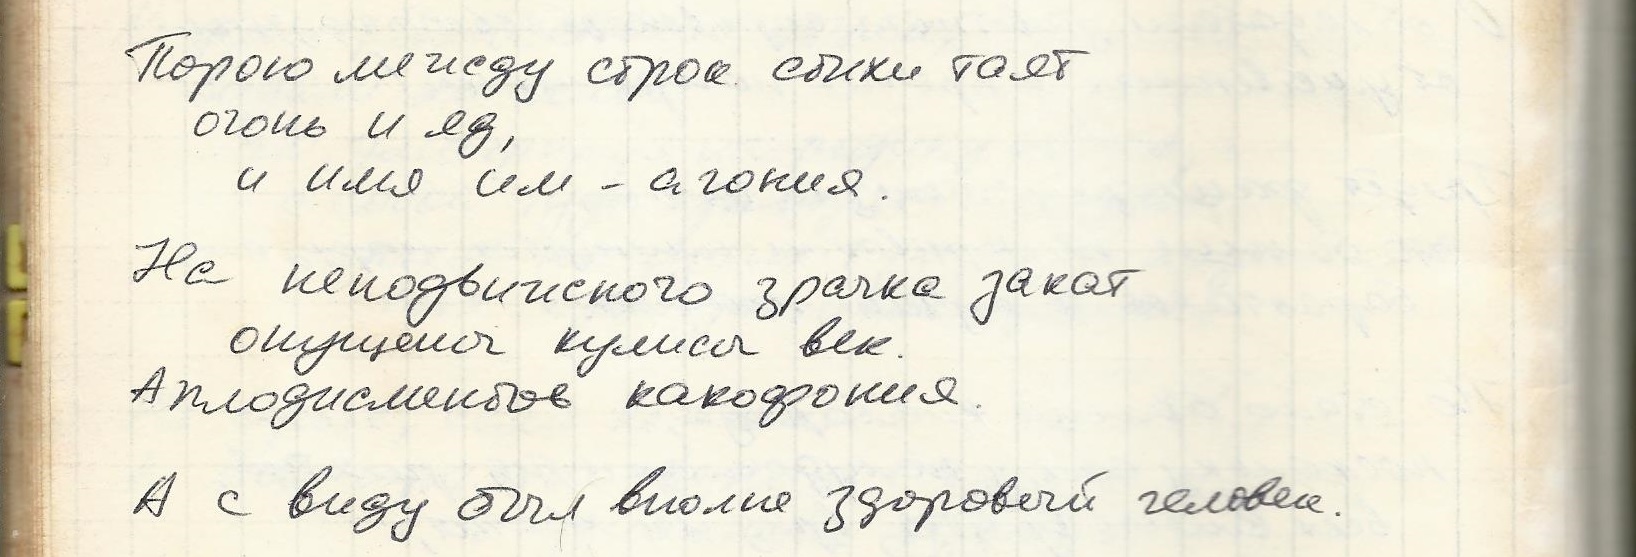 Порою между строк стихи таят
огонь и яд,
и имя им - агония.
На неподвижного зрачка закат
опущены кулисы век.
Аплодисментов какофония.
А с виду был вполне здоровый человек.